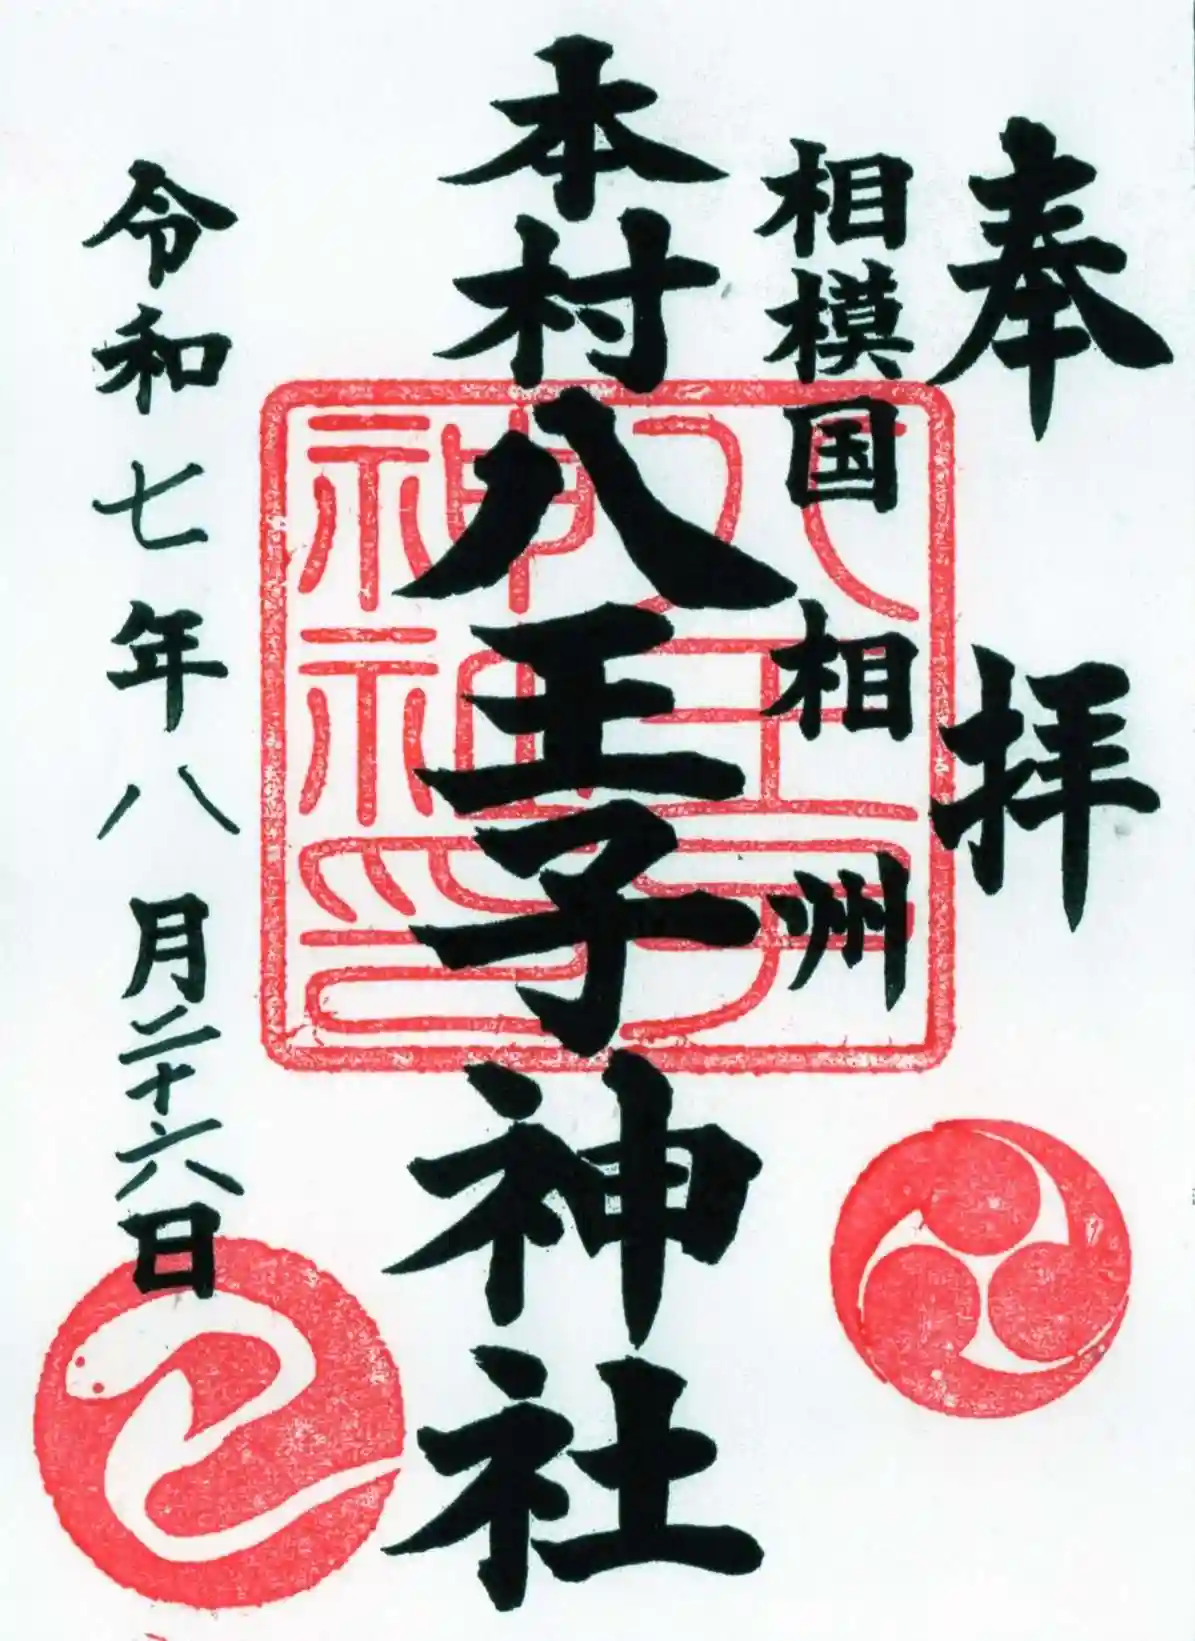 奉拝
相模国 相州
本村八王子神社
八王子神社印
令和七年八月二十六日